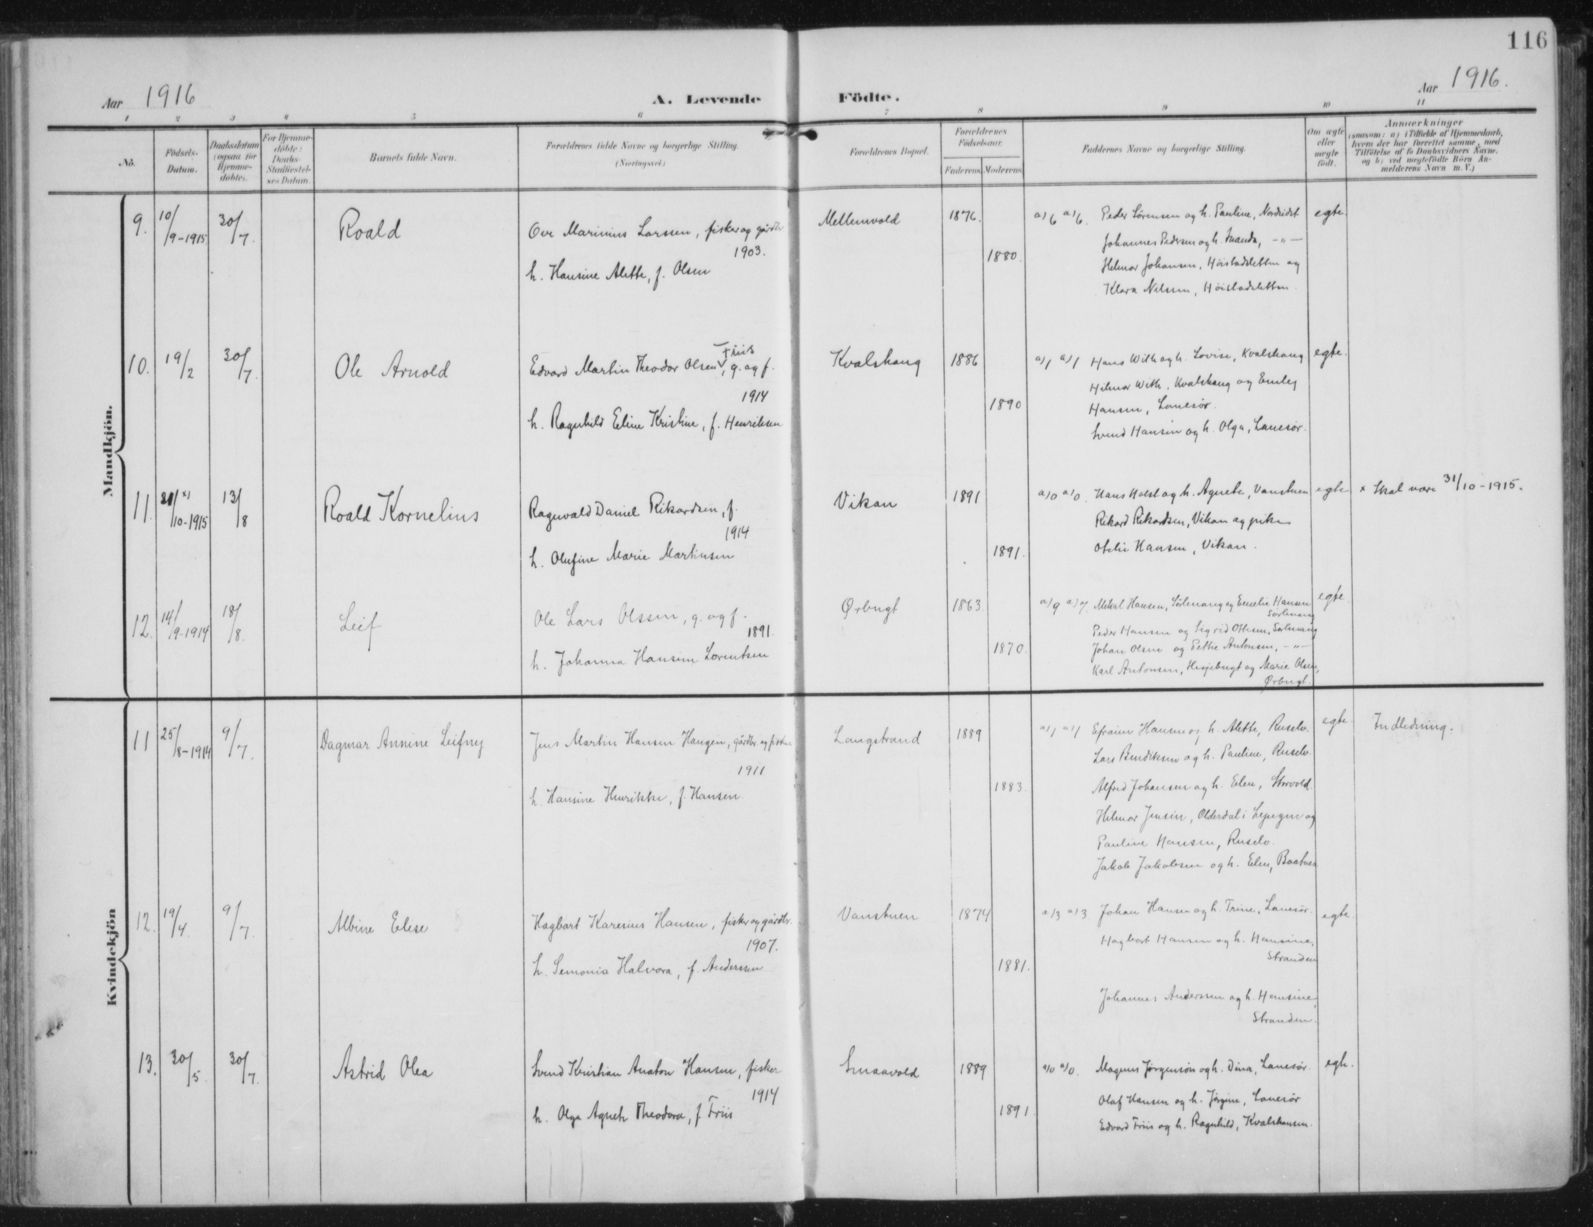 116
Aar 1916
A. Levende Födte.
Aar 1916.
1 2 3 4 5 6 7 8 9 10 11
No.
Födsels-Datum.
Daabsdatum (ogsaa for Hjemme-döbte).
For Hjemme-döbte: Daabs-Stadfæstel-ses Datum.
Barnets fulde Navn.
Forældrenes fulde Navne og borgerlige Stilling.
(Næringsvei.)
Forældrenes Bopæl.
Forældrenes Födselsaar.
Faderens. Moderens.
Faddernes Navne og borgerlige Stilling.
Om ægte eller uægte födt.
Anmærkninger
(saasom: a) i Tilfælde af Hjemmedaab, hvem der har forrettet samme, med Tilföielse af to Daabsvidners Navne. og b) ved uægtefödte Börn An-melderens Navn m. V.)
Mandkjön.
9. 10/9-1915 30/7. Roald
Ove Marinius Larssen, fisker og gårdbr
1903.
h. Hansine Alette, f. Olsen
Mellemvold 1876. 1880.
a/6 a/6. Peder Sörensen og h. Pauline, Nordeidet
Johannes Pedersen og h. Manda, -"-
Helmar Johansen, Höistadsletten og
Klara Nilsen, Höistadsletten.
egte.
10. 19/2 30/7. Ole Arnold
Edvard Martin Theodor Olsen Friis, g. og f.
1914
h. Ragnhild Eline Kristine, f. Henriksen
Kvalshaug 1886 1890
a/1 a/1 Hans With og h. Lovise, Kvalshaug
Hilmar With, Kvalshaug og Emley
Hansen, Lanesör.
Svend Hansen og h. Olga, Lanesör.
egte.
11. 21/10-1915 x) 13/8 Roald Kornelius
Ragnvald Daniel Rikardsen, f.
1914
h. Olufine Marie Martinsen
Vikan 1891 1891.
a/0 a/0. Hans Holst og h. Agnete, Vanstuen
Rikard Rikardsen, Vikan og pike
Otelie Hansen, Vikan.
egte
x Skal være 31/10-1915.
12. 14/9-1914 18/8. Leif
Ole Lars Olssen, g. og f.
1891.
h. Johanna Hansen Lorentsen
Ørbugt 1863 1870.
a/9 a/7 Mikal Hansen, Sörlenang og Emelie Hansen
Sörlenang
Peder Hansen og Sigrid Ottesen, Sörlenang
Johan Olsen og Petke Antonsen, -"-
Karl Antonsen, Hesjebugt og Marie Olsen,
Ørbugt.
egte.
Kvindekjön
11 25/8-1914 9/7. Dagmar Annine Leifny
Jens Martin Hansen Haugen, gårdbr og fisker
1911
h. Hansine Henrikke, f. Hansen
Langstrand 1889 1883.
a/1 a/1 Efraim Hansen og h. Alette, Ruselv.
Lars Bendiksen og h. Pauline, Ruselv.
Alfred Johansen og h. Elen, Storvold.
Helmar Jensen, Olderdal i Lyngen og
Pauline Hansen, Ruselv.
Jakob Jakobsen og h. Elen,
egte.
Indledning.
12. 19/4. 9/7. Albine Elise
Hagbart Karenius Hansen, fisker og gårdbr.
1907.
h. Semonia Halvora, f. Anderssen
Vanstuen 1874 1881.
a/3 a/3 Johan Hansen og h. Trine, Lanesör.
Hagbart Hansen og h. Hansine,
Stranden
Johannes Anderssen og h. Hansine,
Stranden.
egte.
13. 30/5. 30/7. Astrid Olea
Svend Kristian Anaton Hansen, fisker
1914
h. Olga Agnete Theodora, f Friis
Smaavold 1889 1891.
a/0 a/0. Magnus Jörgensen og h. Dina, Lanesör.
Olaf Hansen og h. Jörgine, Lanesör
Edvard Friis og h. Ragnhild, Kvalshausen.
egte.